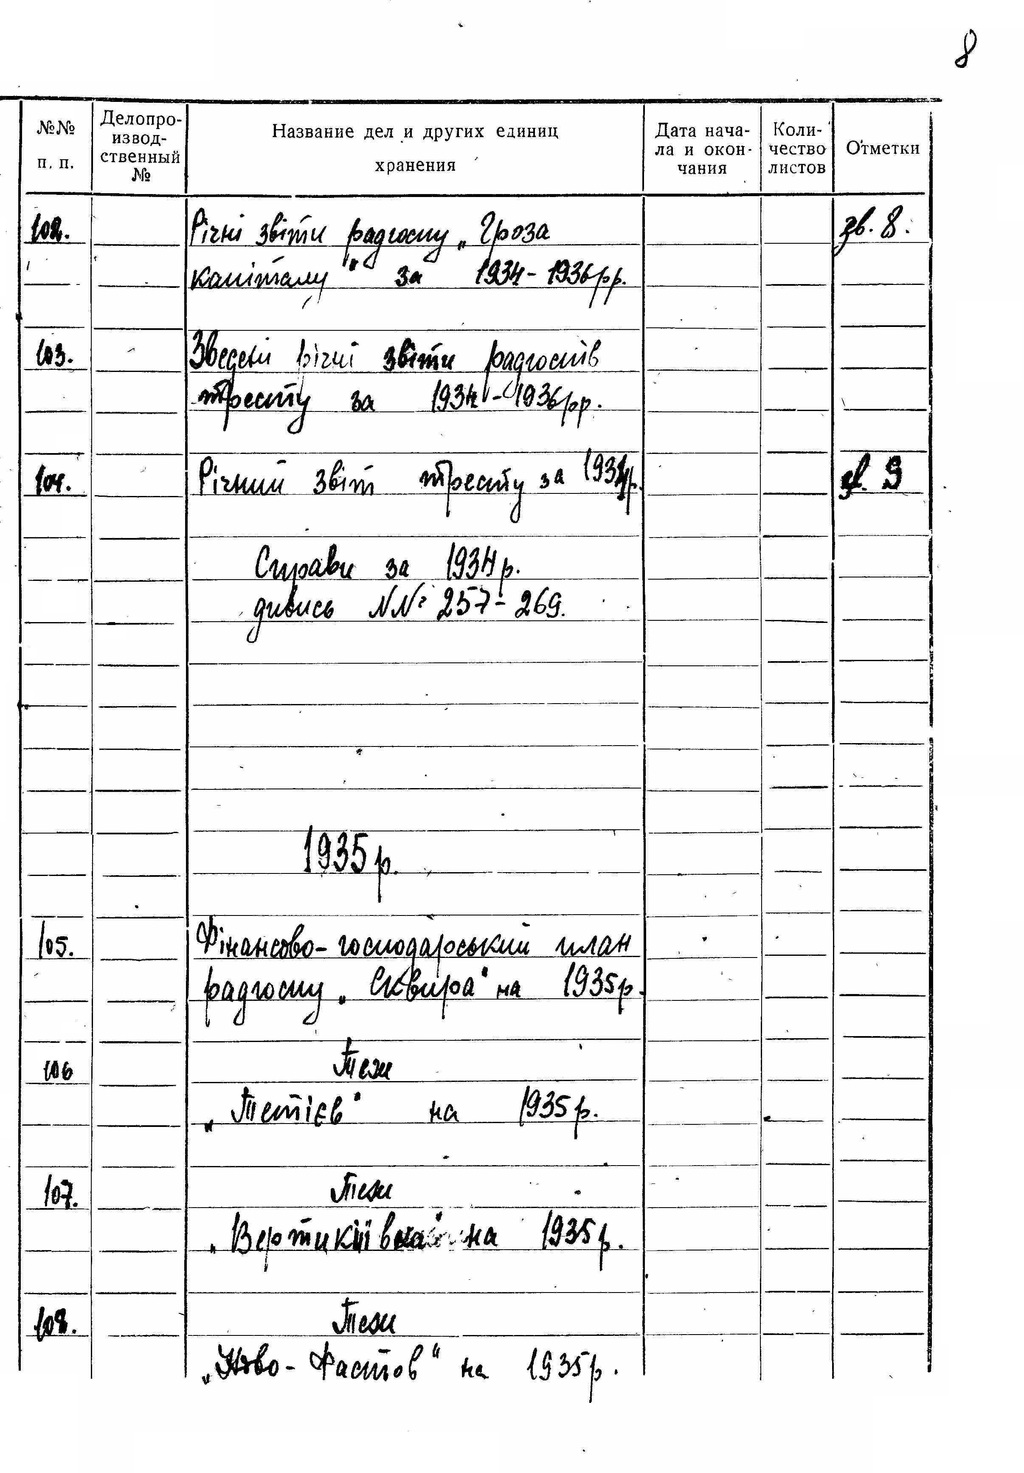 8
№№ п. п.
Делопро-
извод-
ственный
№
Название дел и других единиц
хранения
Дата нача-
ла и окон-
чания
Коли-
чество
листов
Отметки
102. Річні звіти радгоспу „Гроза зв. 8.
капіталу" за 1934-1936рр.
103. Зведені річні звіти радгоспів
тресту за 1934-1936рр.
104. Річний звіт тресту за 1934р. зв. 9
Справи за 1934р.
дивись №№ 257-269.
1935р.
105. Фінансово-господарський план
радгоспу „Сквира" на 1935р.
106 Теж
„Тетієв" на 1935р.
107. Теж
„ на 1935р.
108. Теж
„Ново-Фастов" на 1935р.